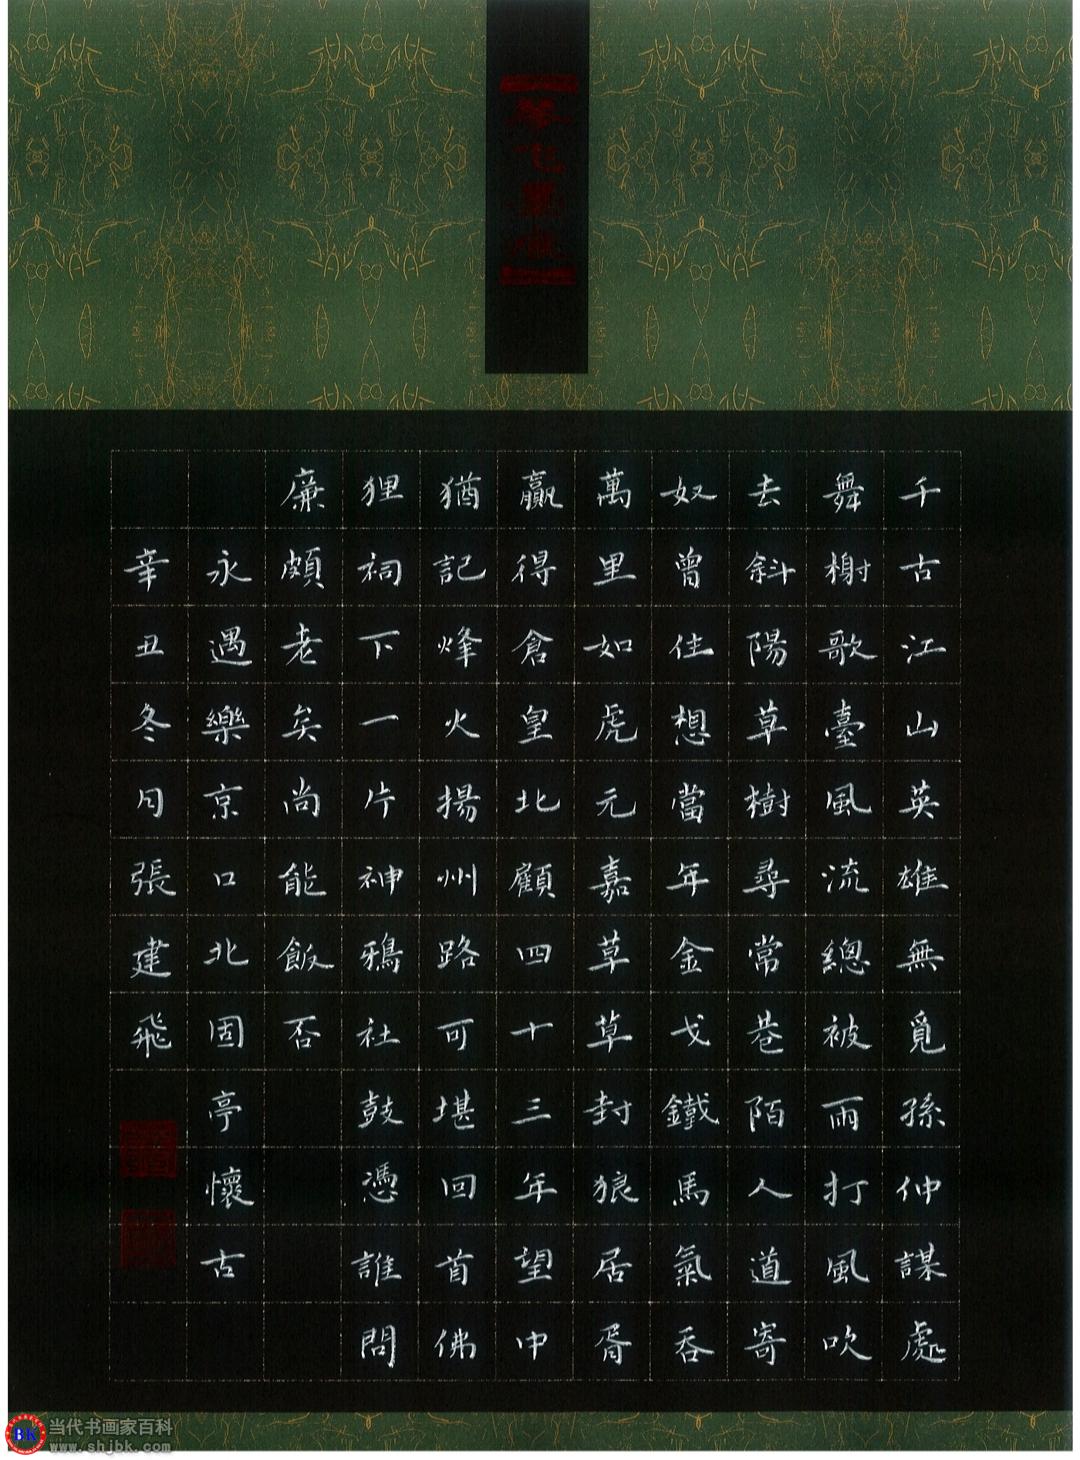 千古江山英雄無覓孫仲謀處
舞榭歌臺風流總被雨打風吹
去斜陽草樹尋常巷陌人道寄
奴曾住想當年金戈鐵馬氣吞
萬里如虎元嘉草草封狼居胥
贏得倉皇北顧四十三年望中
猶記烽火揚州路可堪回首佛
狸祠下一片神鴉社鼓憑誰問
廉頗老矣尚能飯否
永遇樂京口北固亭懷古
辛丑冬月張建飛
BK
当代书画家百科
www.shjbk.com